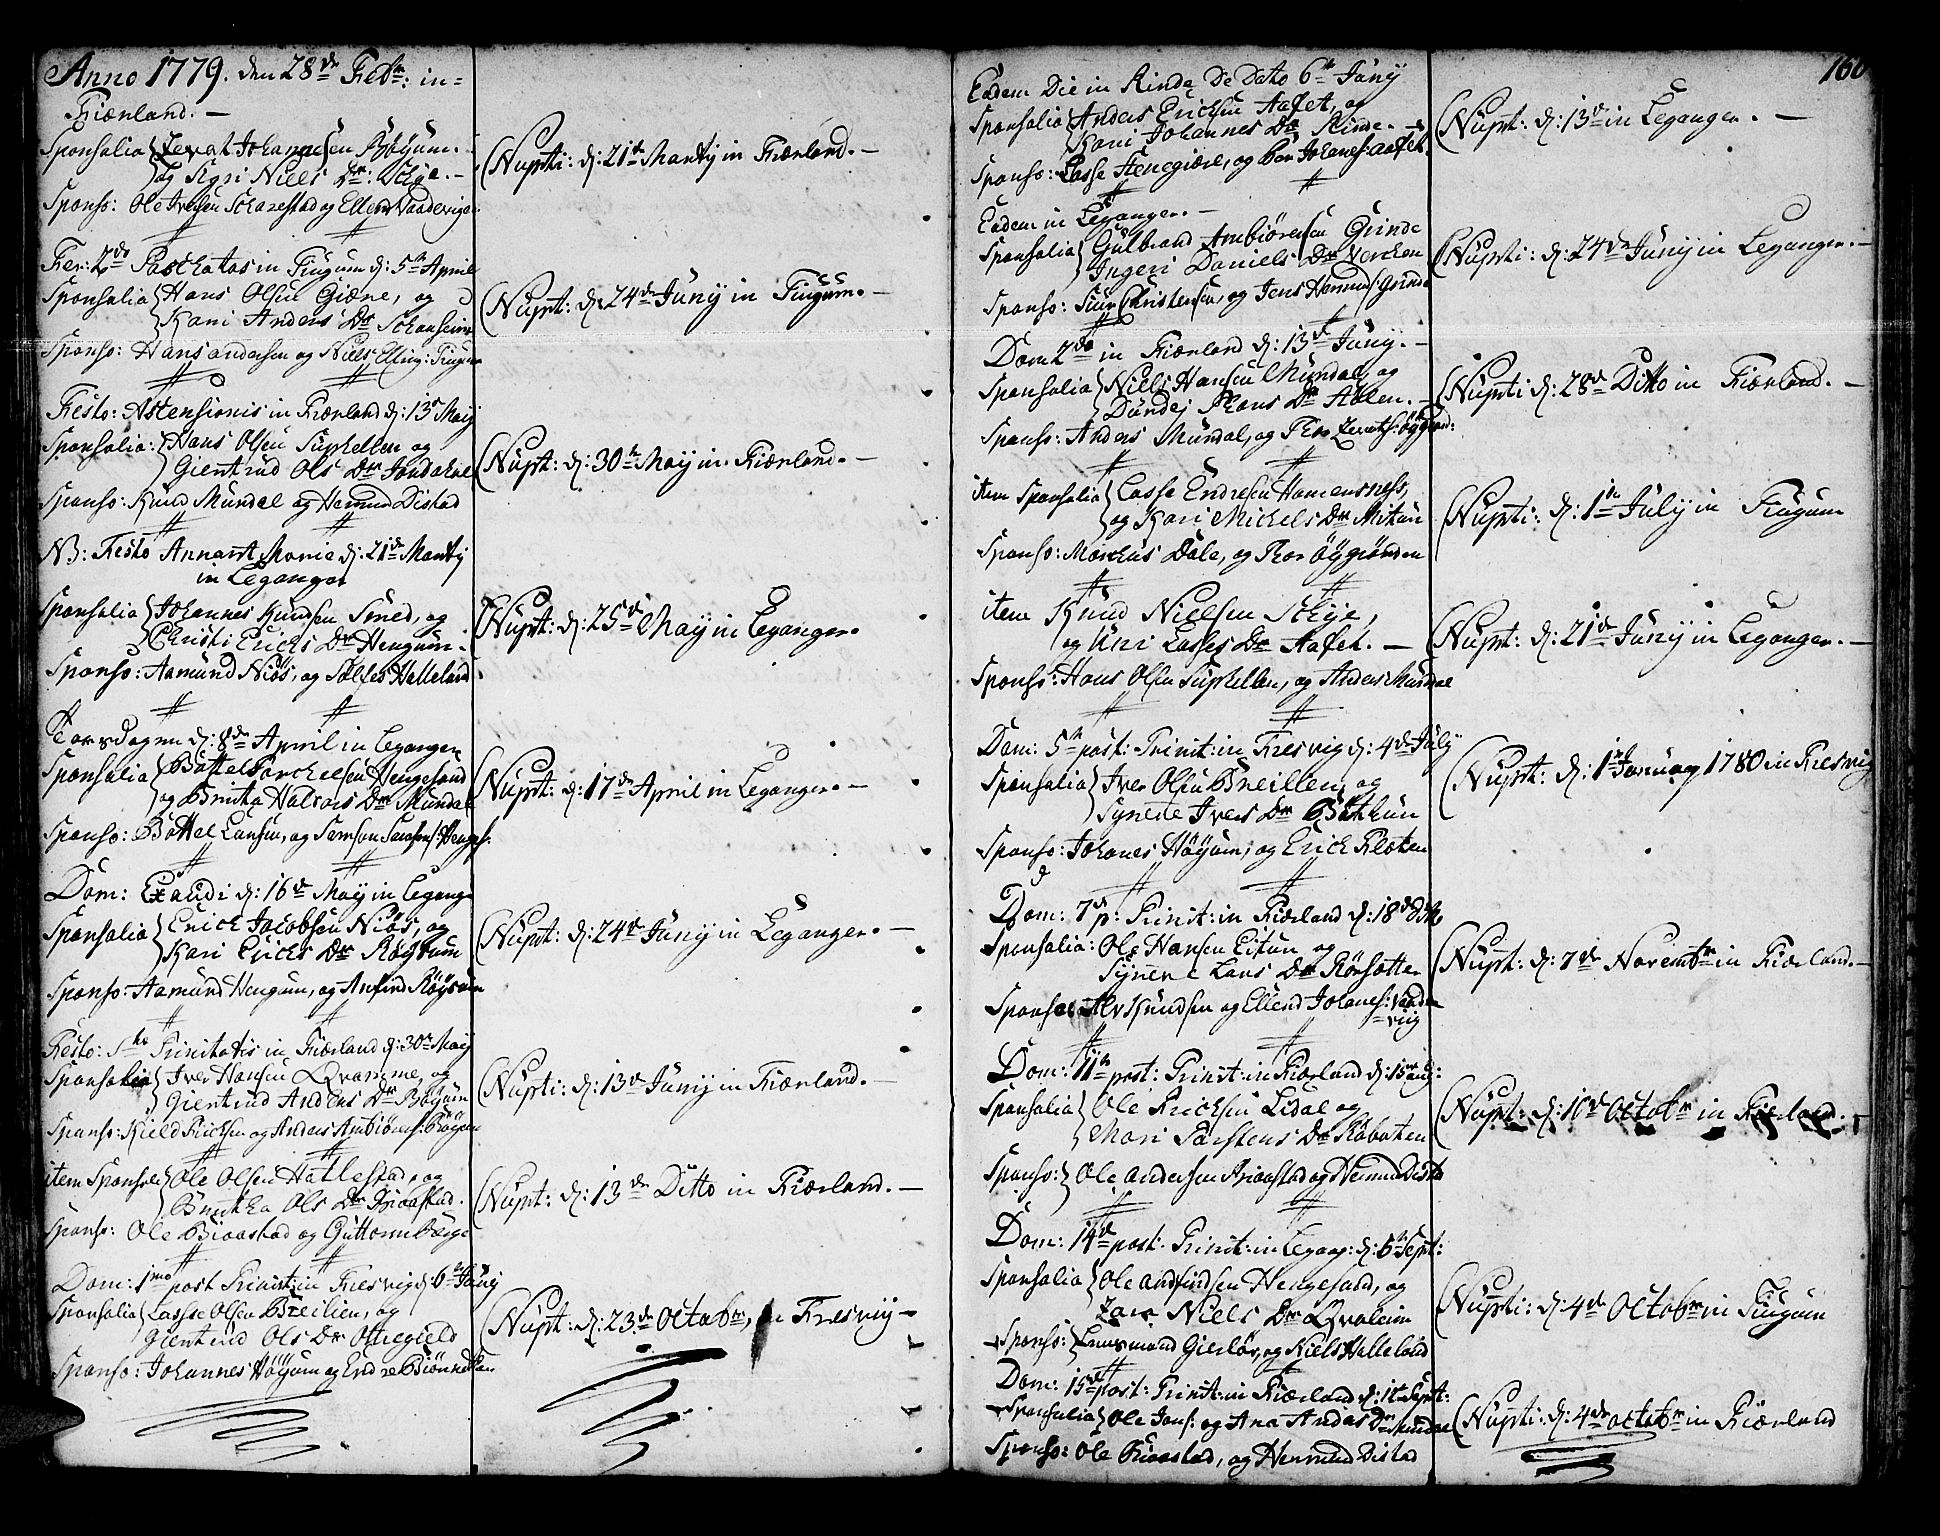 Anno 1779. den 28de Febr: in
Fiærland. –
Sponsalia Zerak Johannesen Bøÿum. –
og Sigri Niels Dr: Schie. –
Sponso: Ole Ivefsen og Ellend Vaadevigen
Fer: 2da Paschatos in Tiugum d: 5te April
Sponsalia Hans Olsen Giære, og
Kari Anders Dr
Sponso: Hans andersen og Niels Elling: Tiugum
Festo: Astensionis in Fiærland d: 13de Maij
Sponsalia: Hans Olsen Suphellen og
Giertrud Ols Dr Jordahl
Sponso: Knud Mundal og Hermund Distad
NB: Festo Annunt Maria d: 21de Martij
in Leganger
Sponsalia Johannes Knudsen Smed, og
Christi Erichs Dr Hengum.
Sponso: Aamund Niøs, og Halleland
Torsdagen d: 8de April in Leganger
Sponsalia Bottel Torchelsen Hengesand
og Britha Halvors Dr Mundal
Sponso: Bottel Larsen, og Samson
Dom: Exaudi d: 16de Maij in Legange
Sponsalia Erich Jacobsen Niøs, og
Kari Erichs Dr Røysum
Sponso: Aamund Hengum, og Anfind Røysum
Festo: Trinitatis in Fiærland d: 30te Maij
Sponsalia Iver Hansen Qvamme, og
Giertrud Anders Dr Bøÿum
Sponso: Kield og Anders Ambiørns: Bøyum
item Sponsali Ole Olsen Hallestad, og
Britha Ols Dr Bioastad.
Sponso: Ole Bioastad og Guttorm Berge
Dom: 1mo post Trinit: in Fresvig d: 6te Junij
Sponsalia Lasse Olsen Breilien, og
Giertrud Ols Dr Ottegield
Sponso: Johannes Høÿum og Endre
(Nupti: d: 21de Martij in Fiærland. –
(Nupt: d: 24de Junij in Tiugum. –
(Nupt: d: 30te Maij in Fiærland. –
(Nupt: d: 25de Maij in Leganger.
(Nupt: d: 17de April in Leganger. –
(Nupt: d: 24de Junij in Leganger. –
(Nupti: d: 13de Junij in Fiærland. –
(Nupt: d: 13de Ditto in Fiærland. –
(Nupt: d: 23de Octobr, in Fresvig –
160
Eadem Die in Rinde De Dato 6te Junij
Sponsalia Anders Erichsen Aafet, og
Kari Johannes Dr Rinde. –
Sponso: Lasse Henegiære, og Johanes: aafet.
Eadem in Leganger. –
Sponsalia Gulbrand Ambiørnsen Grinde
Ingeri Daniels Dr
Sponso: Siur Christensen, og Jens Hermunds: Grinde
Dom 2da in Fiærland d: 13de Junij. –
Sponsalia Niels Hansen Mundal, og
Dordej Dr –
Sponso: Anders Mundal, og Thor
item Sponsalia Lasse Endresen Hamersness,
og Kari Michels Dr Mitun
Sponso: Marchus Dale, og Thor
item Knud Nielsen Schie,
og Uni Lasses Dr Aafet. –
Sponso: Hans Olsen Suphellen, og Anders Mundal
Dom: 5te post: Trinit: in Fresvig d: 4de July
Sponsalia Iver Olsen Breilien, og
Synene Ivers Dr Bøthun
Sponso: Johanes Høÿum, og Erich
Dom: 7de p: Trinit: in Fiærland d: 18de Ditto
Sponsalia: Ole Hansen Eitun, og
Synene Lars Dr Rørsætter
Sponso: Alv Knudsen og Ellend Johanes: Vaade
vig
Dom: 11te post: Trinit: in Fiærland d: 15de aug:
Sponsalia Ole Erichsen Lidal og
Mari Torstens Dr
Sponso: Ole Andersen Bioastad og Hermun Distad
Dom: 14de post: Trinit: in Legang: d: 5te Sept:
Sponsalia Ole andfindsen Hengesand, og
Niels Dr
Sponso: Gierløv, og Niels Halleland
Dom: 15de post: Trinit: in Fiærland d: 12 Sept:
Sponsalia Ole Jens: og Ana Andas Dr Mundal
Sponso: Ole Bioastad, og Hermund Distad
(Nupt: d: 13de in Leganger. –
(Nupti: d: 24de Junij in Leganger. –
(Nupti d: 28de Ditto in Fiærland. –
(Nupti: d: 1te July in Tiugum
(Nupt: d: 21de Junij in Leganger. –
(Nupt: d: 1te Januarj 1780 in Fresvig
(Nupt: d: 7de Novembr in Fiærland. –
(Nupt: d: 16de Octobr in Fiærland. –
(Nupti: d: 4de Octobr in Tiugum
(Nupti: d: 4de octobr in Fiærland